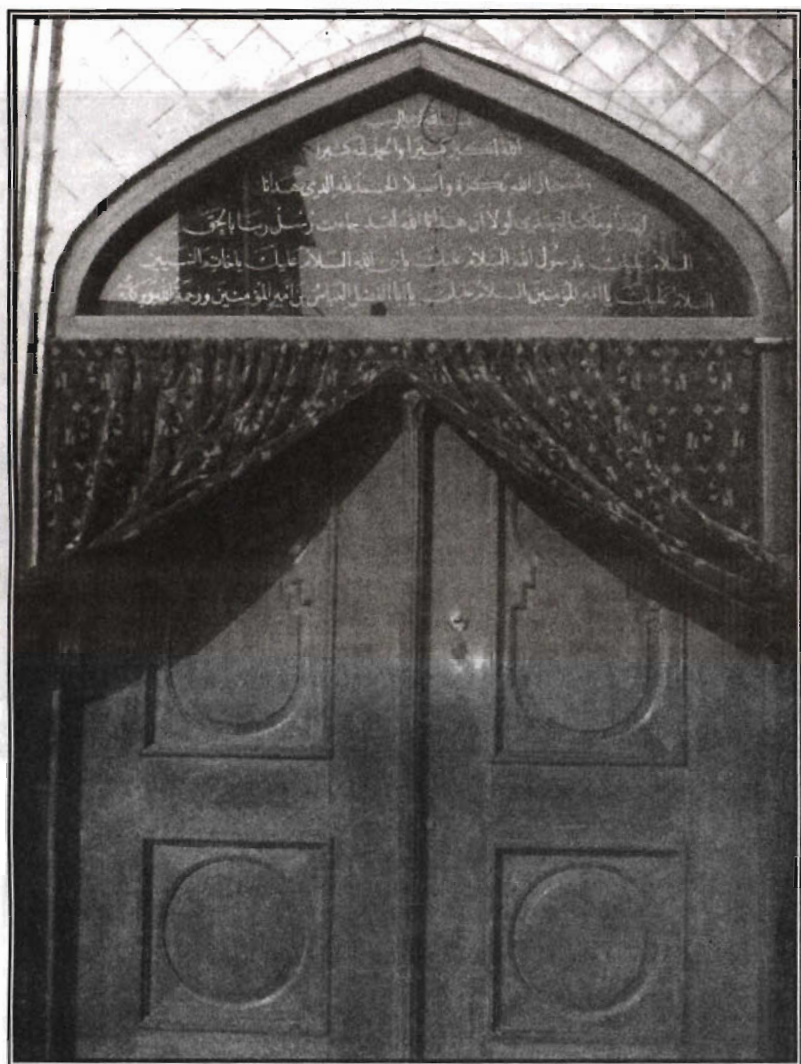 بسم الله الرحمن الرحيم
الله أكبر كبيرا والحمد لله كثيرا
وسبحان الله بكرة وأصيلا الحمد لله الذي هدانا
لهذا وما كنا لنهتدي لولا أن هدانا الله لقد جاءت رسل ربنا بالحق
السلام عليك يا رسول الله السلام عليك يا نبي الله السلام عليك يا خاتم النبيين
السلام عليك يا أمير المؤمنين السلام عليك يا أبا الفضل العباس بن أمير المؤمنين ورحمة الله وبركاته